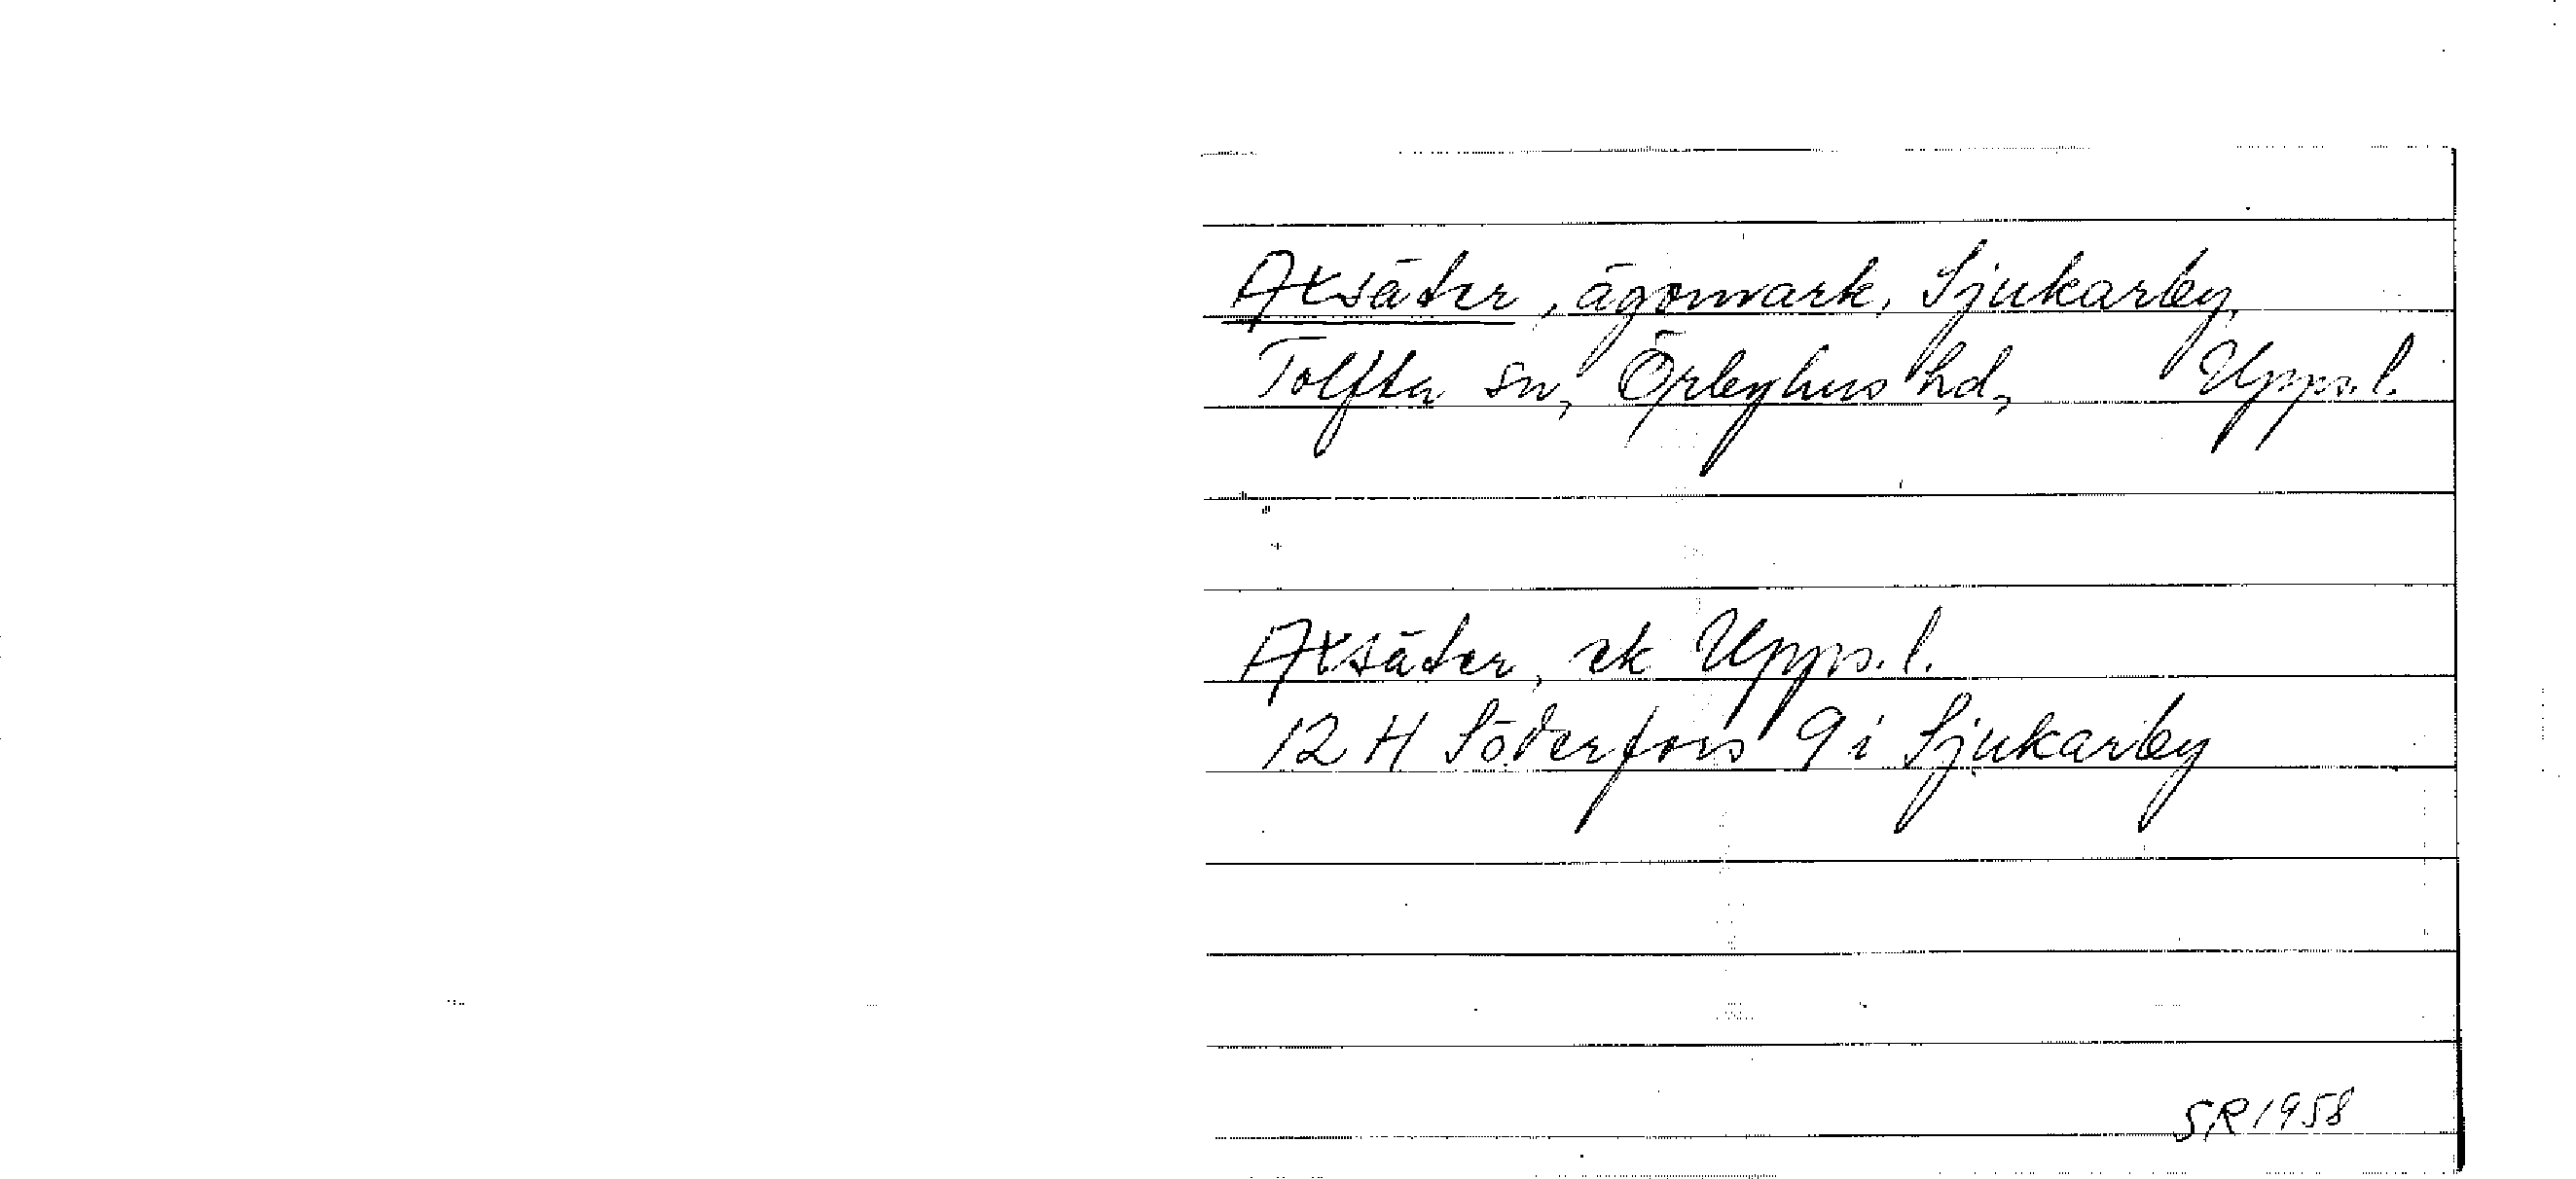 Axsäter, ägomark, Sjukarby,
Tolfta sn, Örbyhus hd, Upps.l.
Axsäter, ek Upps.l.
12 H Söderfors 9 i Sjukarby
SR 1958